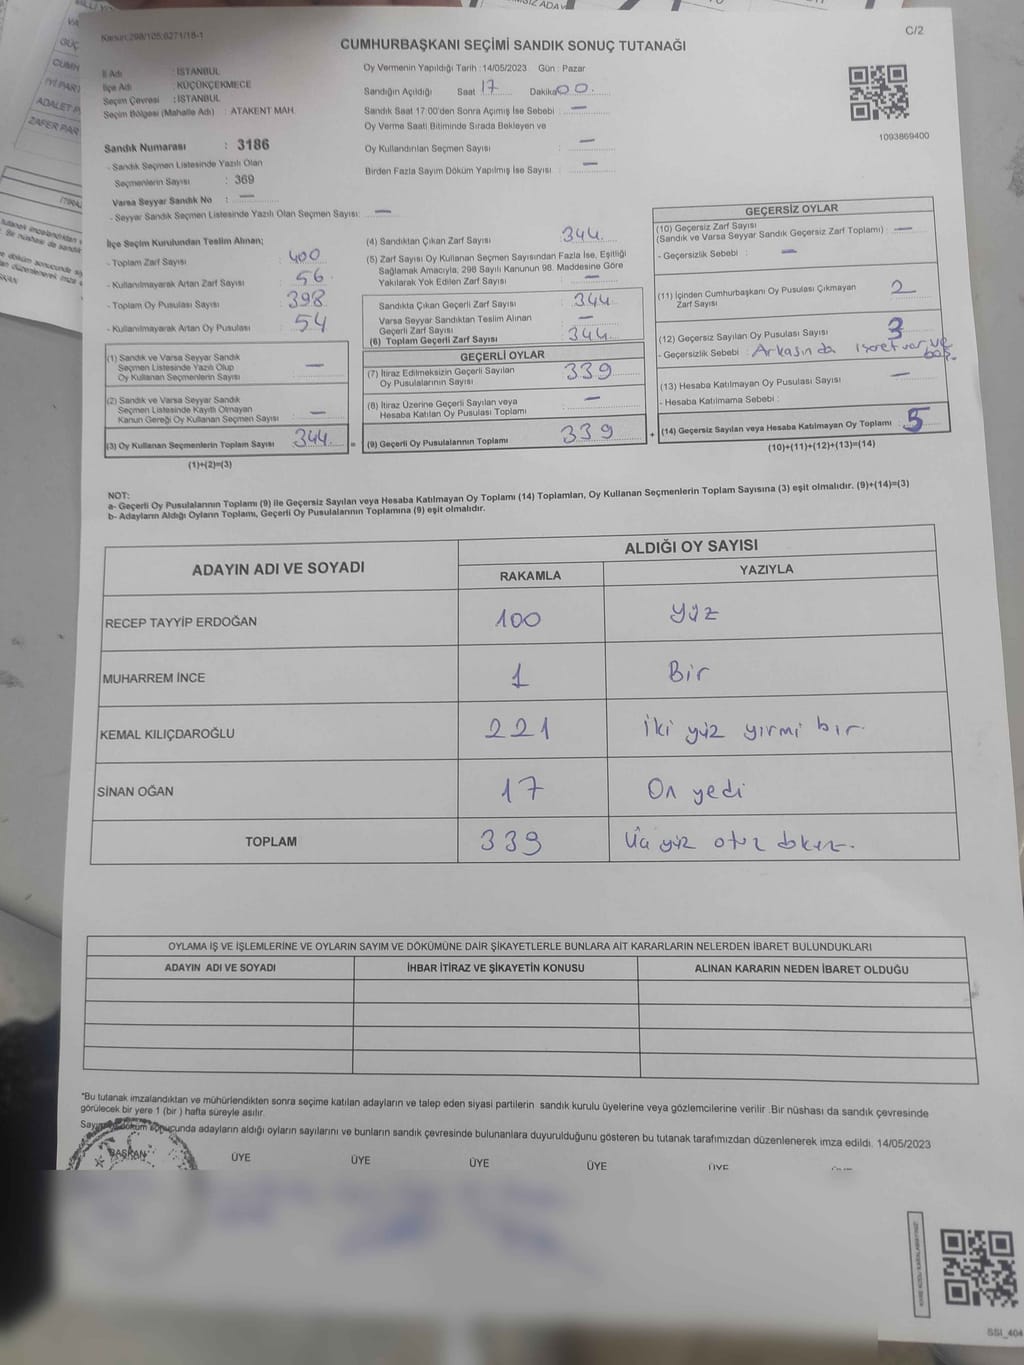 Kanun:298/105;6271/18-1
C/2
CUMHURBAŞKANI SEÇİMİ SANDIK SONUÇ TUTANAĞI
İl Adı : İSTANBUL
İlçe Adı : KÜÇÜKÇEKMECE
Seçim Çevresi : İSTANBUL
Seçim Bölgesi (Mahalle Adı) : ATAKENT MAH.
Sandık Numarası : 3186
- Sandık Seçmen Listesinde Yazılı Olan
Seçmenlerin Sayısı : 369
Varsa Seyyar Sandık No : —
- Seyyar Sandık Seçmen Listesinde Yazılı Olan Seçmen Sayısı: —
Oy Vermenin Yapıldığı Tarih : 14/05/2023 Gün : Pazar
Sandığın Açıldığı Saat 17 Dakika 00.
Sandık Saat 17:00'den Sonra Açımış İse Sebebi : —
Oy Verme Saati Bitiminde Sırada Bekleyen ve
Oy Kullandırılan Seçmen Sayısı : —
Birden Fazla Sayım Döküm Yapılmış İse Sayısı : —
1093869400
İlçe Seçim Kurulundan Teslim Alınan;
- Toplam Zarf Sayısı : 400
- Kullanılmayarak Artan Zarf Sayısı : 56
- Toplam Oy Pusulası Sayısı : 398
- Kullanılmayarak Artan Oy Pusulası : 54
(1) Sandık ve Varsa Seyyar Sandık
Seçmen Listesinde Yazılı Olup
Oy Kullanan Seçmenlerin Sayısı : —
(2) Sandık ve Varsa Seyyar Sandık
Seçmen Listesinde Kayıtlı Olmayan
Kanun Gereği Oy Kullanan Seçmen Sayısı : —
(3) Oy Kullanan Seçmenlerin Toplam Sayısı : 344
(1)+(2)=(3)
(4) Sandıktan Çıkan Zarf Sayısı : 344
(5) Zarf Sayısı Oy Kullanan Seçmen Sayısından Fazla İse, Eşitliği
Sağlamak Amacıyla; 298 Sayılı Kanunun 98. Maddesine Göre
Yakılarak Yok Edilen Zarf Sayısı : —
Sandıkta Çıkan Geçerli Zarf Sayısı : 344
Varsa Seyyar Sandıktan Teslim Alınan
Geçerli Zarf Sayısı : —
(6) Toplam Geçerli Zarf Sayısı : 344
GEÇERLİ OYLAR
(7) İtiraz Edilmeksizin Geçerli Sayılan
Oy Pusulalarının Sayısı : 339
(8) İtiraz Üzerine Geçerli Sayılan veya
Hesaba Katılan Oy Pusulası Toplamı : —
= (9) Geçerli Oy Pusulalarının Toplamı : 339
GEÇERSİZ OYLAR
(10) Geçersiz Zarf Sayısı
(Sandık ve Varsa Seyyar Sandık Geçersiz Zarf Toplamı) : —
- Geçersizlik Sebebi : —
(11) İçinden Cumhurbaşkanı Oy Pusulası Çıkmayan
Zarf Sayısı : 2
(12) Geçersiz Sayılan Oy Pusulası Sayısı : 3
- Geçersizlik Sebebi : Arkasında işaret var, ve boş.
(13) Hesaba Katılmayan Oy Pusulası Sayısı : —
- Hesaba Katılmama Sebebi :
+ (14) Geçersiz Sayılan veya Hesaba Katılmayan Oy Toplamı : 5
(10)+(11)+(12)+(13)=(14)
NOT:
a- Geçerli Oy Pusulalarının Toplamı (9) ile Geçersiz Sayılan veya Hesaba Katılmayan Oy Toplamı (14) Toplamları, Oy Kullanan Seçmenlerin Toplam Sayısına (3) eşit olmalıdır. (9)+(14)=(3)
b- Adayların Aldığı Oyların Toplamı, Geçerli Oy Pusulalarının Toplamına (9) eşit olmalıdır.
ADAYIN ADI VE SOYADI
ALDIĞI OY SAYISI
RAKAMLA YAZIYLA
RECEP TAYYİP ERDOĞAN 100 Yüz
MUHARREM İNCE 1 Bir
KEMAL KILIÇDAROĞLU 221 İki yüz yirmi bir.
SİNAN OĞAN 17 On yedi
TOPLAM 339 Üç yüz otuz dokuz.
OYLAMA İŞ VE İŞLEMLERİNE VE OYLARIN SAYIM VE DÖKÜMÜNE DAİR ŞİKAYETLERLE BUNLARA AİT KARARLARIN NELERDEN İBARET BULUNDUKLARI
ADAYIN ADI VE SOYADI İHBAR İTİRAZ VE ŞİKAYETİN KONUSU ALINAN KARARIN NEDEN İBARET OLDUĞU
*Bu tutanak imzalandıktan ve mühürlendikten sonra seçime katılan adayların ve talep eden siyasi partilerin sandık kurulu üyelerine veya gözlemcilerine verilir. Bir nüshası da sandık çevresinde
görülecek bir yere 1 (bir) hafta süreyle asılır.
Sayım döküm sonucunda adayların aldığı oyların sayılarını ve bunların sandık çevresinde bulunanlara duyurulduğunu gösteren bu tutanak tarafımızdan düzenlenerek imza edildi. 14/05/2023
BAŞKAN ÜYE ÜYE ÜYE ÜYE ÜYE
SSI_404